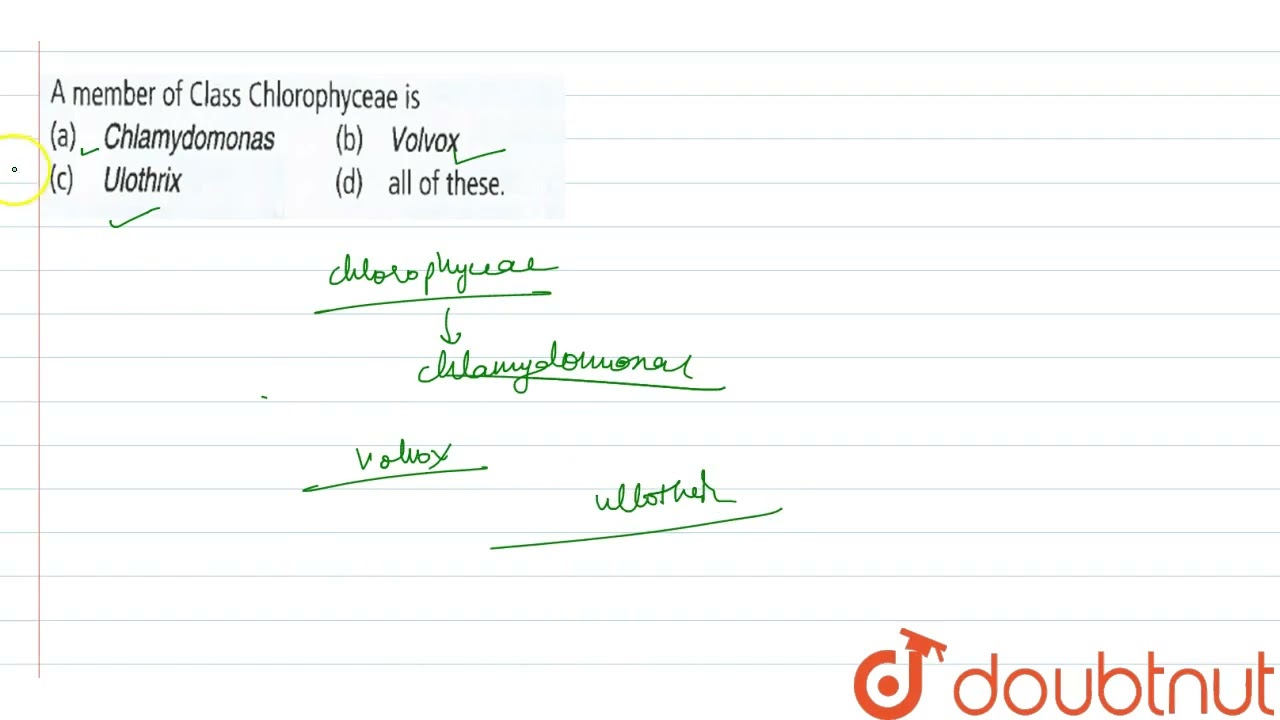 A member of Class Chlorophyceae is
(a) Chlamydomonas (b) Volvox
(c) Ulothrix (d) all of these.
chlorophyceae
chlamydomonas
volvox
ullothrix
doubtnut